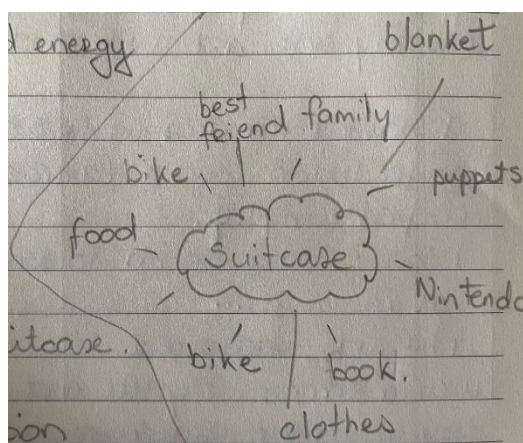 d energy
blanket
best
feiend family
bike
puppets
food
Suitcase
Nintendo
itcase.
bike
book.
ion
clothes